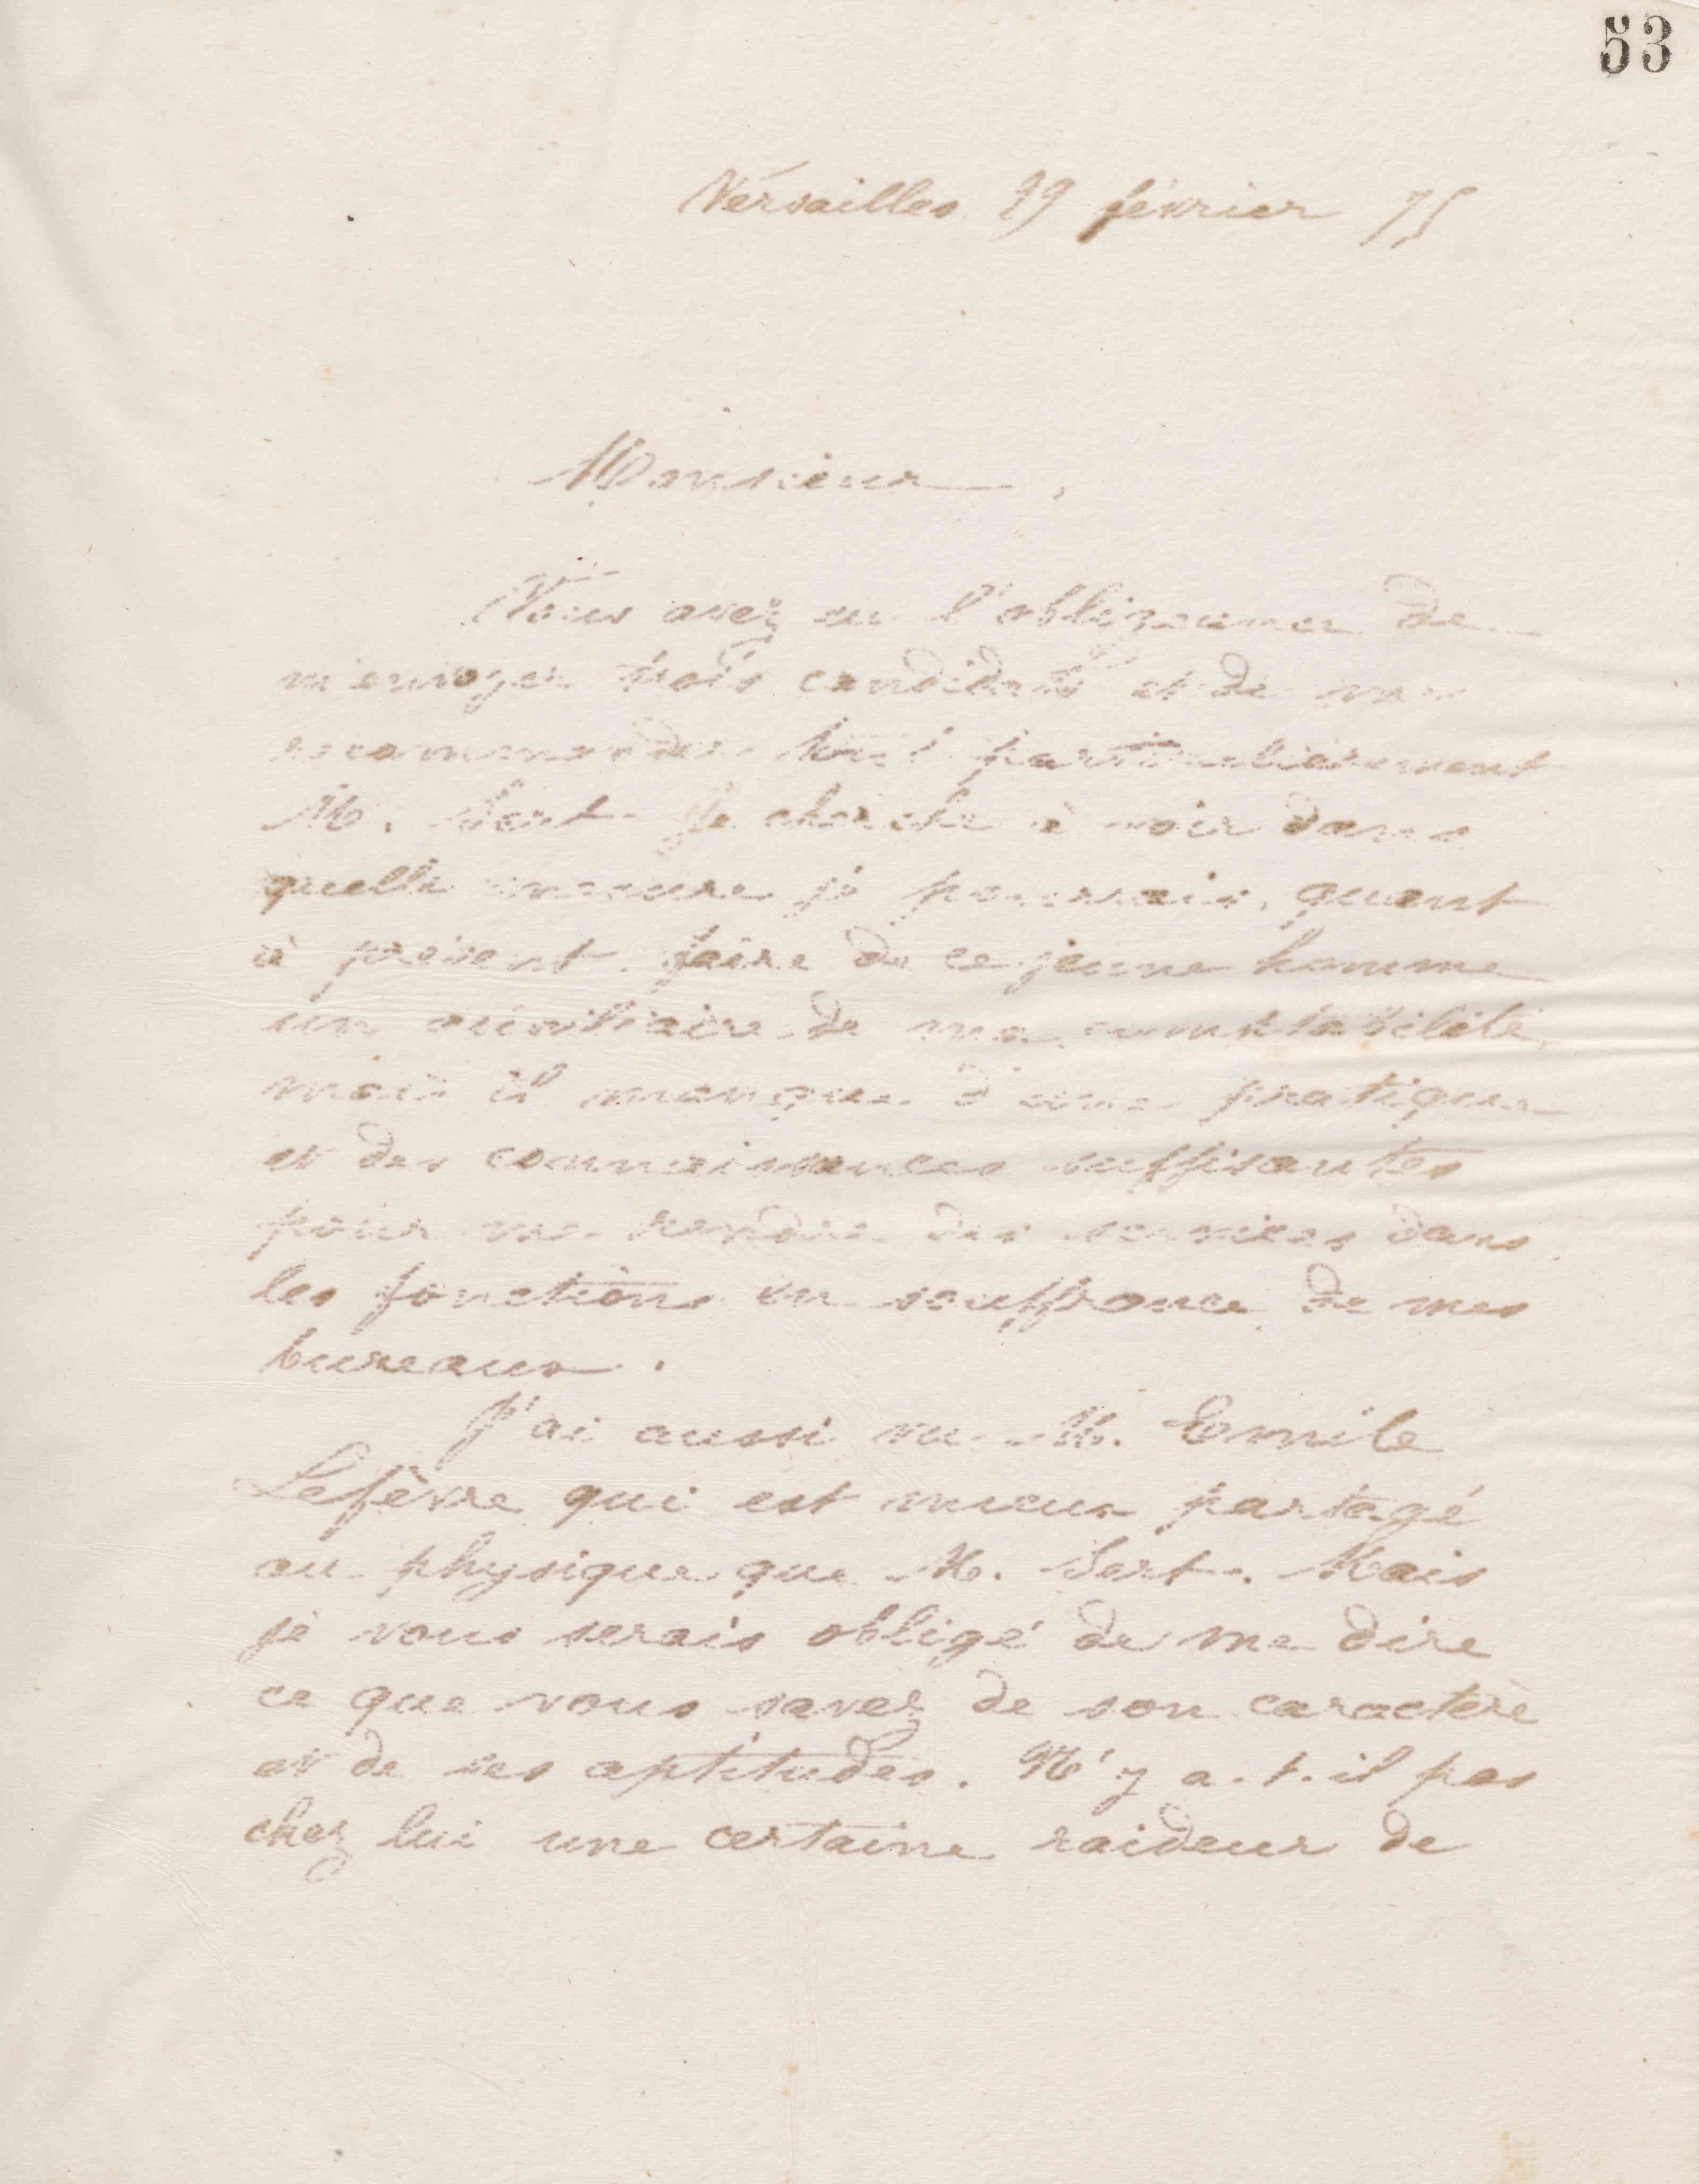 53
Versailles février 75
Monsieur,
Vous avez eu l'obligeance de
m'envoyer trois candidats et de me
recommander tout particulièrement
M. Sert. Je cherche à voir dans
quelle mesure je pourrais, quant
à présent, faire de ce jeune homme
un auxiliaire de ma comptabilité,
mais il manque d'une pratique
et des connaissances suffisantes
pour me rendre des services dans
les fonctions en souffrance de mes
bureaux.
J'ai aussi vu M. Emile
Lefèvre qui est mieux partagé
au physique que M. Sert. Mais
je vous serais obligé de me dire
ce que vous savez de son caractère
et de ses aptitudes. N'y a-t-il pas
chez lui une certaine raideur de